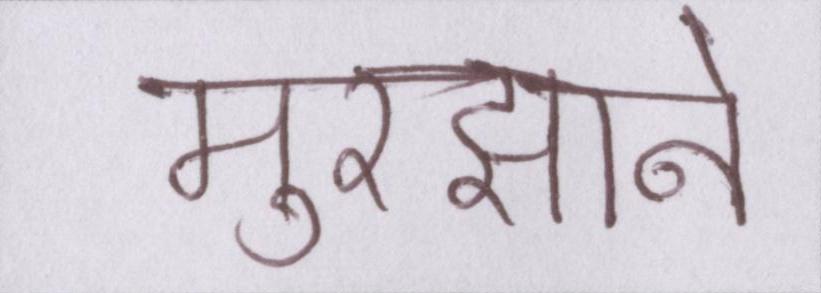 मुरझाने